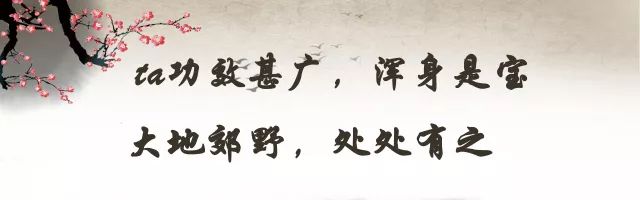 ta功效甚广，浑身是宝
大地郊野，处处有之